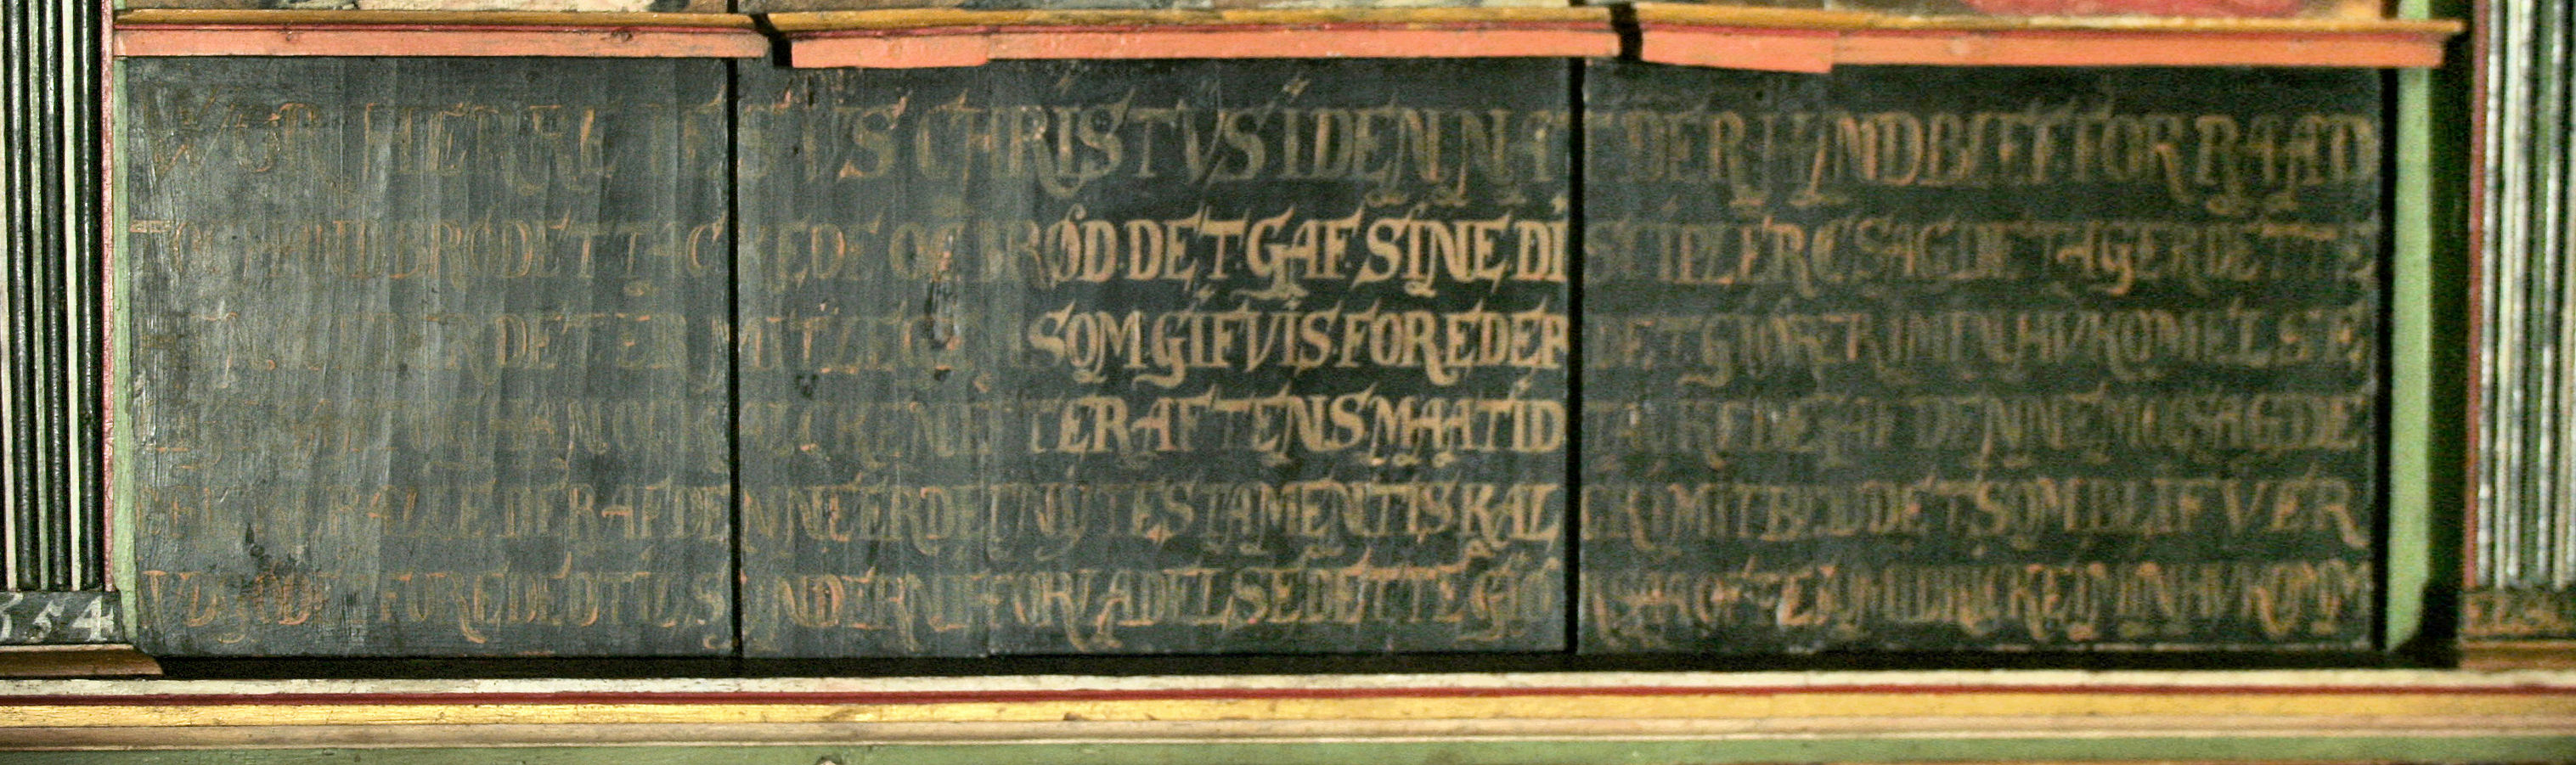 WOR HERRE IESVS CHRISTVS I DEN NAT DER HAND BLEF FOR RAAD
TOG HAND BRØDET TACKEDE OC BRØD DET GAF SINE DISCIPLER OC SAGDE TAGER DETTE
DET ER MIT LEGEM SOM GIFVIS FOR EDER DET GIØRER I MIN HVKOMELSE
HAN OC KALCKEN EFTER AFTENS MAATID TACKEDE GAF DENNEM OC SAGDE
ALLE DER AF DENNE ER DET NY TESTAMENTIS KALCK I MIT BLOD DET SOM BLIFVER
VDGØDET FOR EDER TIL SYNDERNE FORLADELSE DETTE GIØ SAA OFTE I DRICKE I MIN HVKOMM
554